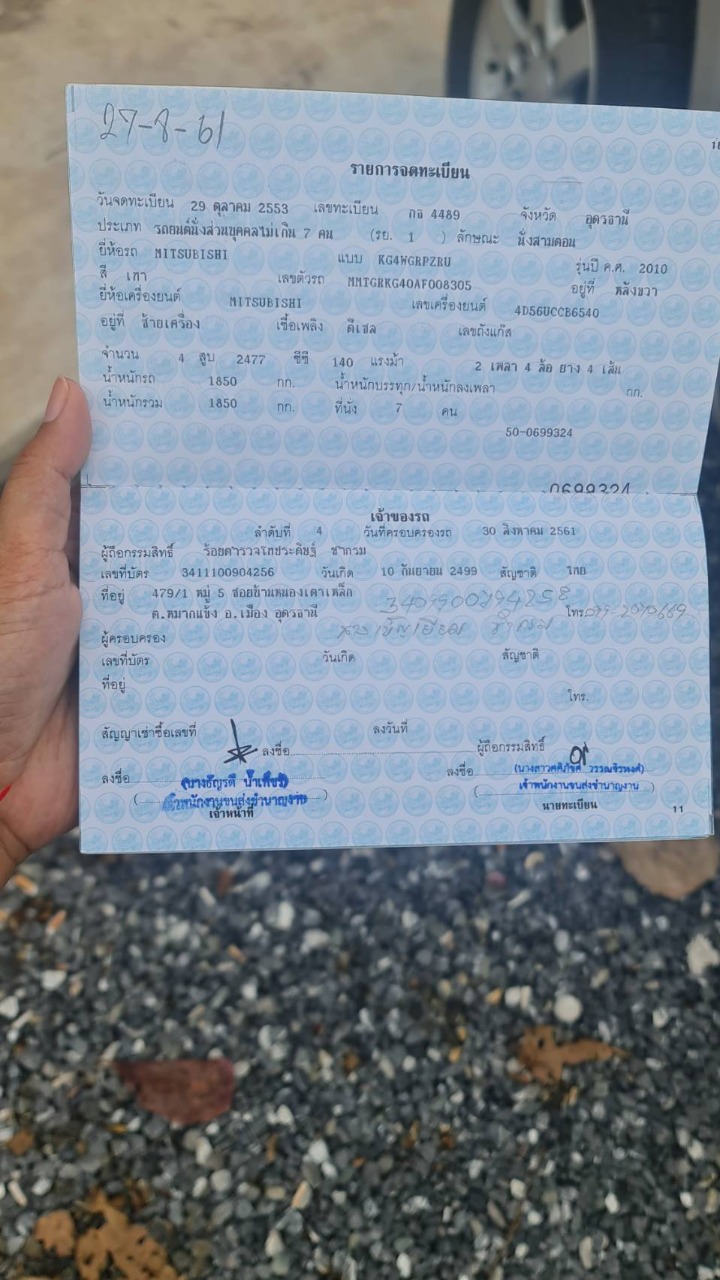 27-8-61
รายการจดทะเบียน
วันจดทะเบียน 29 ตุลาคม 2553 เลขทะเบียน กธ 4489 จังหวัด อุดรธานี
ประเภท รถยนต์นั่งส่วนบุคคลไม่เกิน 7 คน (รย. 1 ) ลักษณะ นั่งสามตอน
ยี่ห้อรถ MITSUBISHI แบบ KG4WGRPZRU รุ่นปี ค.ศ. 2010
สี เทา เลขตัวรถ MMTGRKG40AF008305 อยู่ที่ หลังขวา
ยี่ห้อเครื่องยนต์ MITSUBISHI เลขเครื่องยนต์ 4D56UCCB6540
อยู่ที่ ซ้ายเครื่อง เชื้อเพลิง ดีเซล เลขถังแก๊ส
จำนวน 4 สูบ 2477 ซีซี 140 แรงม้า 2 เพลา 4 ล้อ ยาง 4 เส้น
น้ำหนักรถ 1850 กก. น้ำหนักบรรทุก/น้ำหนักลงเพลา กก.
น้ำหนักรวม 1850 กก. ที่นั่ง 7 คน
50-0699324
0699324
เจ้าของรถ
ลำดับที่ 4 วันที่ครอบครองรถ 30 สิงหาคม 2561
ผู้ถือกรรมสิทธิ์ ร้อยตำรวจโทประดิษฐ์ ชากรม
เลขที่บัตร 3411100904256 วันเกิด 10 กันยายน 2499 สัญชาติ ไทย
ที่อยู่ 479/1 หมู่ 5 ซอยบ้านหนองเตาเหล็ก
ต.หมากแข้ง อ.เมือง อุดรธานี โทร.
ผู้ครอบครอง
เลขที่บัตร วันเกิด สัญชาติ
ที่อยู่
โทร.
สัญญาเช่าซื้อเลขที่ ลงวันที่
ลงชื่อ ผู้ถือกรรมสิทธิ์
ลงชื่อ ลงชื่อ
เจ้าพนักงานขนส่งชำนาญงาน เจ้าพนักงานขนส่งชำนาญงาน
เจ้าหน้าที่ นายทะเบียน 11